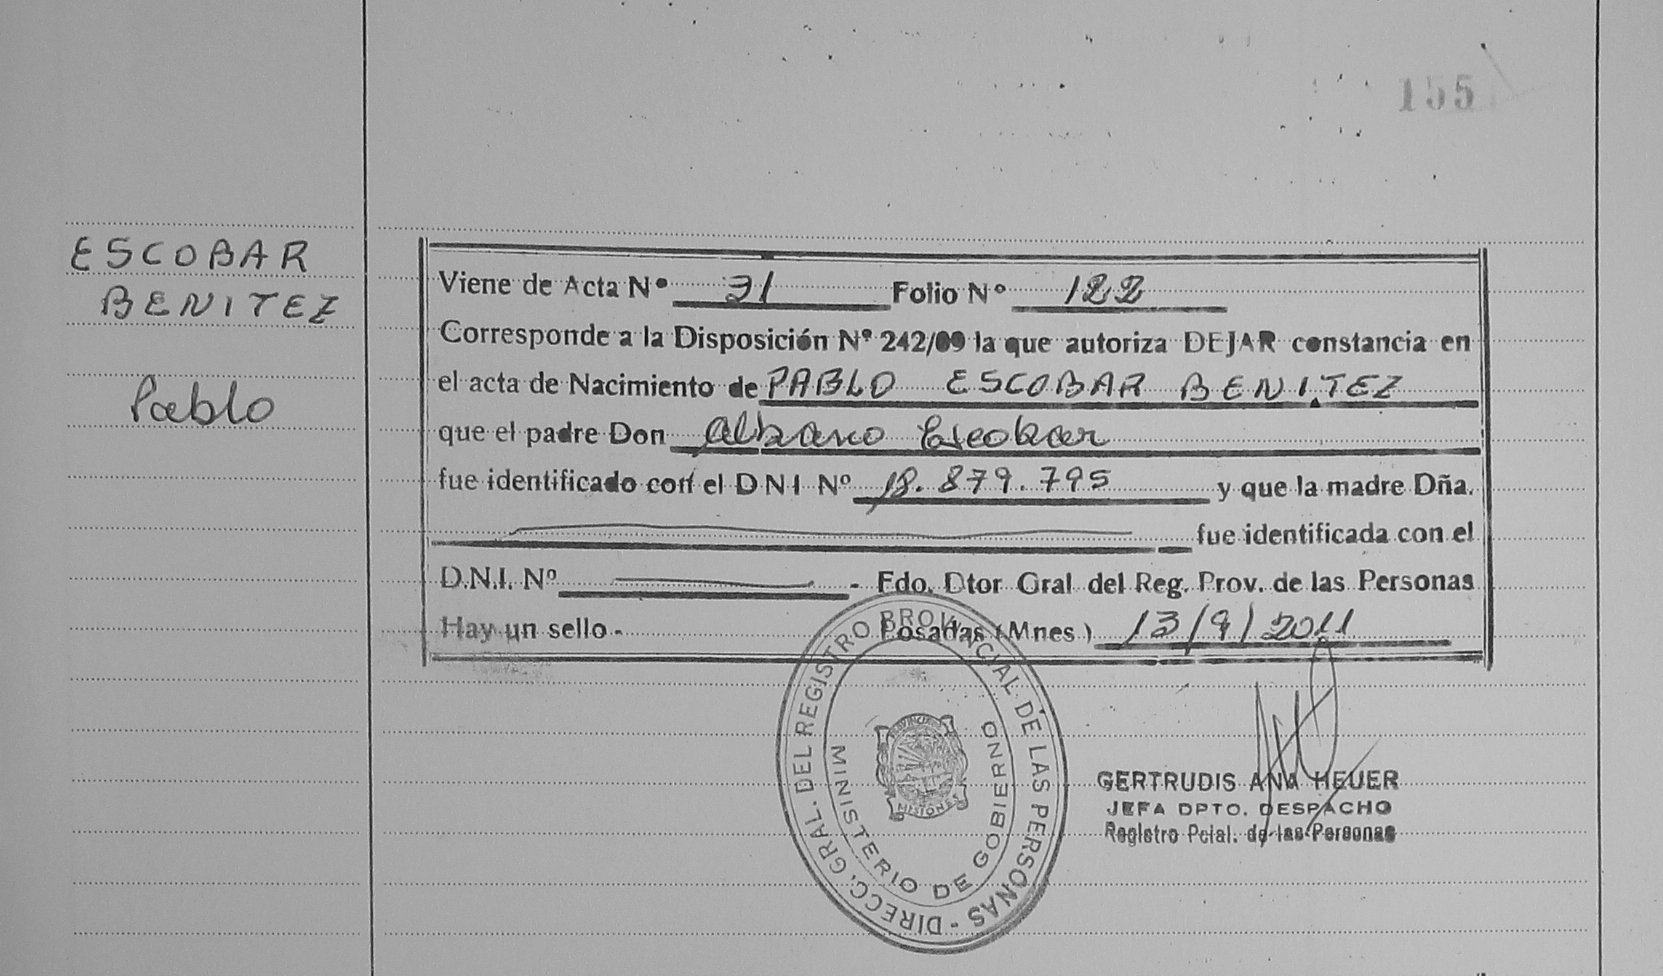 155
ESCOBAR
BENITEZ
Pablo
Viene de Acta Nº 31 Folio Nº 122
Corresponde a la Disposición Nº 242/09 la que autoriza DEJAR constancia en
el acta de Nacimiento de PABLO ESCOBAR BENITEZ
que el padre Don Albano Escobar
fue identificado con el D N I Nº 18.879.795 y que la madre Dña.
fue identificada con el
D.N.I. Nº - Fdo. Dtor Gral del Reg. Prov. de las Personas
Hay un sello - Posadas (Mnes) 13/9/2011
DIRECC. GRAL. DEL REGISTRO PROVINCIAL DE LAS PERSONAS -
MINISTERIO DE GOBIERNO
PROVINCIA
MISIONES
GERTRUDIS ANA HEUER
JEFA DPTO. DESPACHO
Registro Pcial. de las Personas